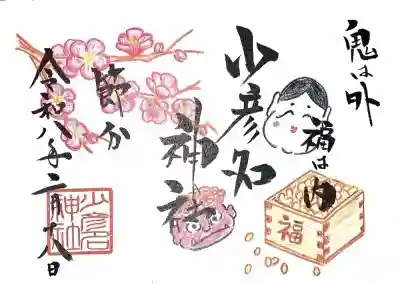 鬼は外
福は内
福
少彦名
神社
節分
令和八年二月六日
少彦名
神社